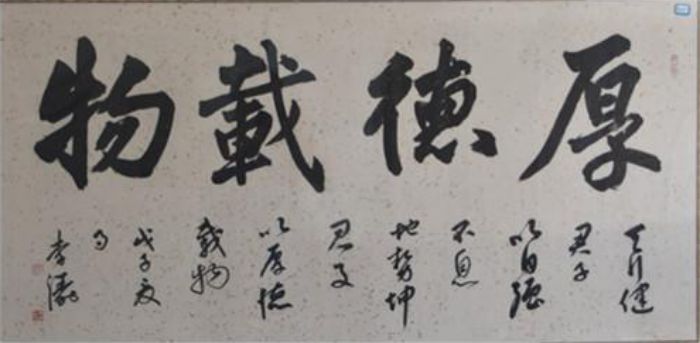 厚德載物
天行健
君子
以自强
不息
地势坤
君子
以厚德
载物
戊子夏
李濤